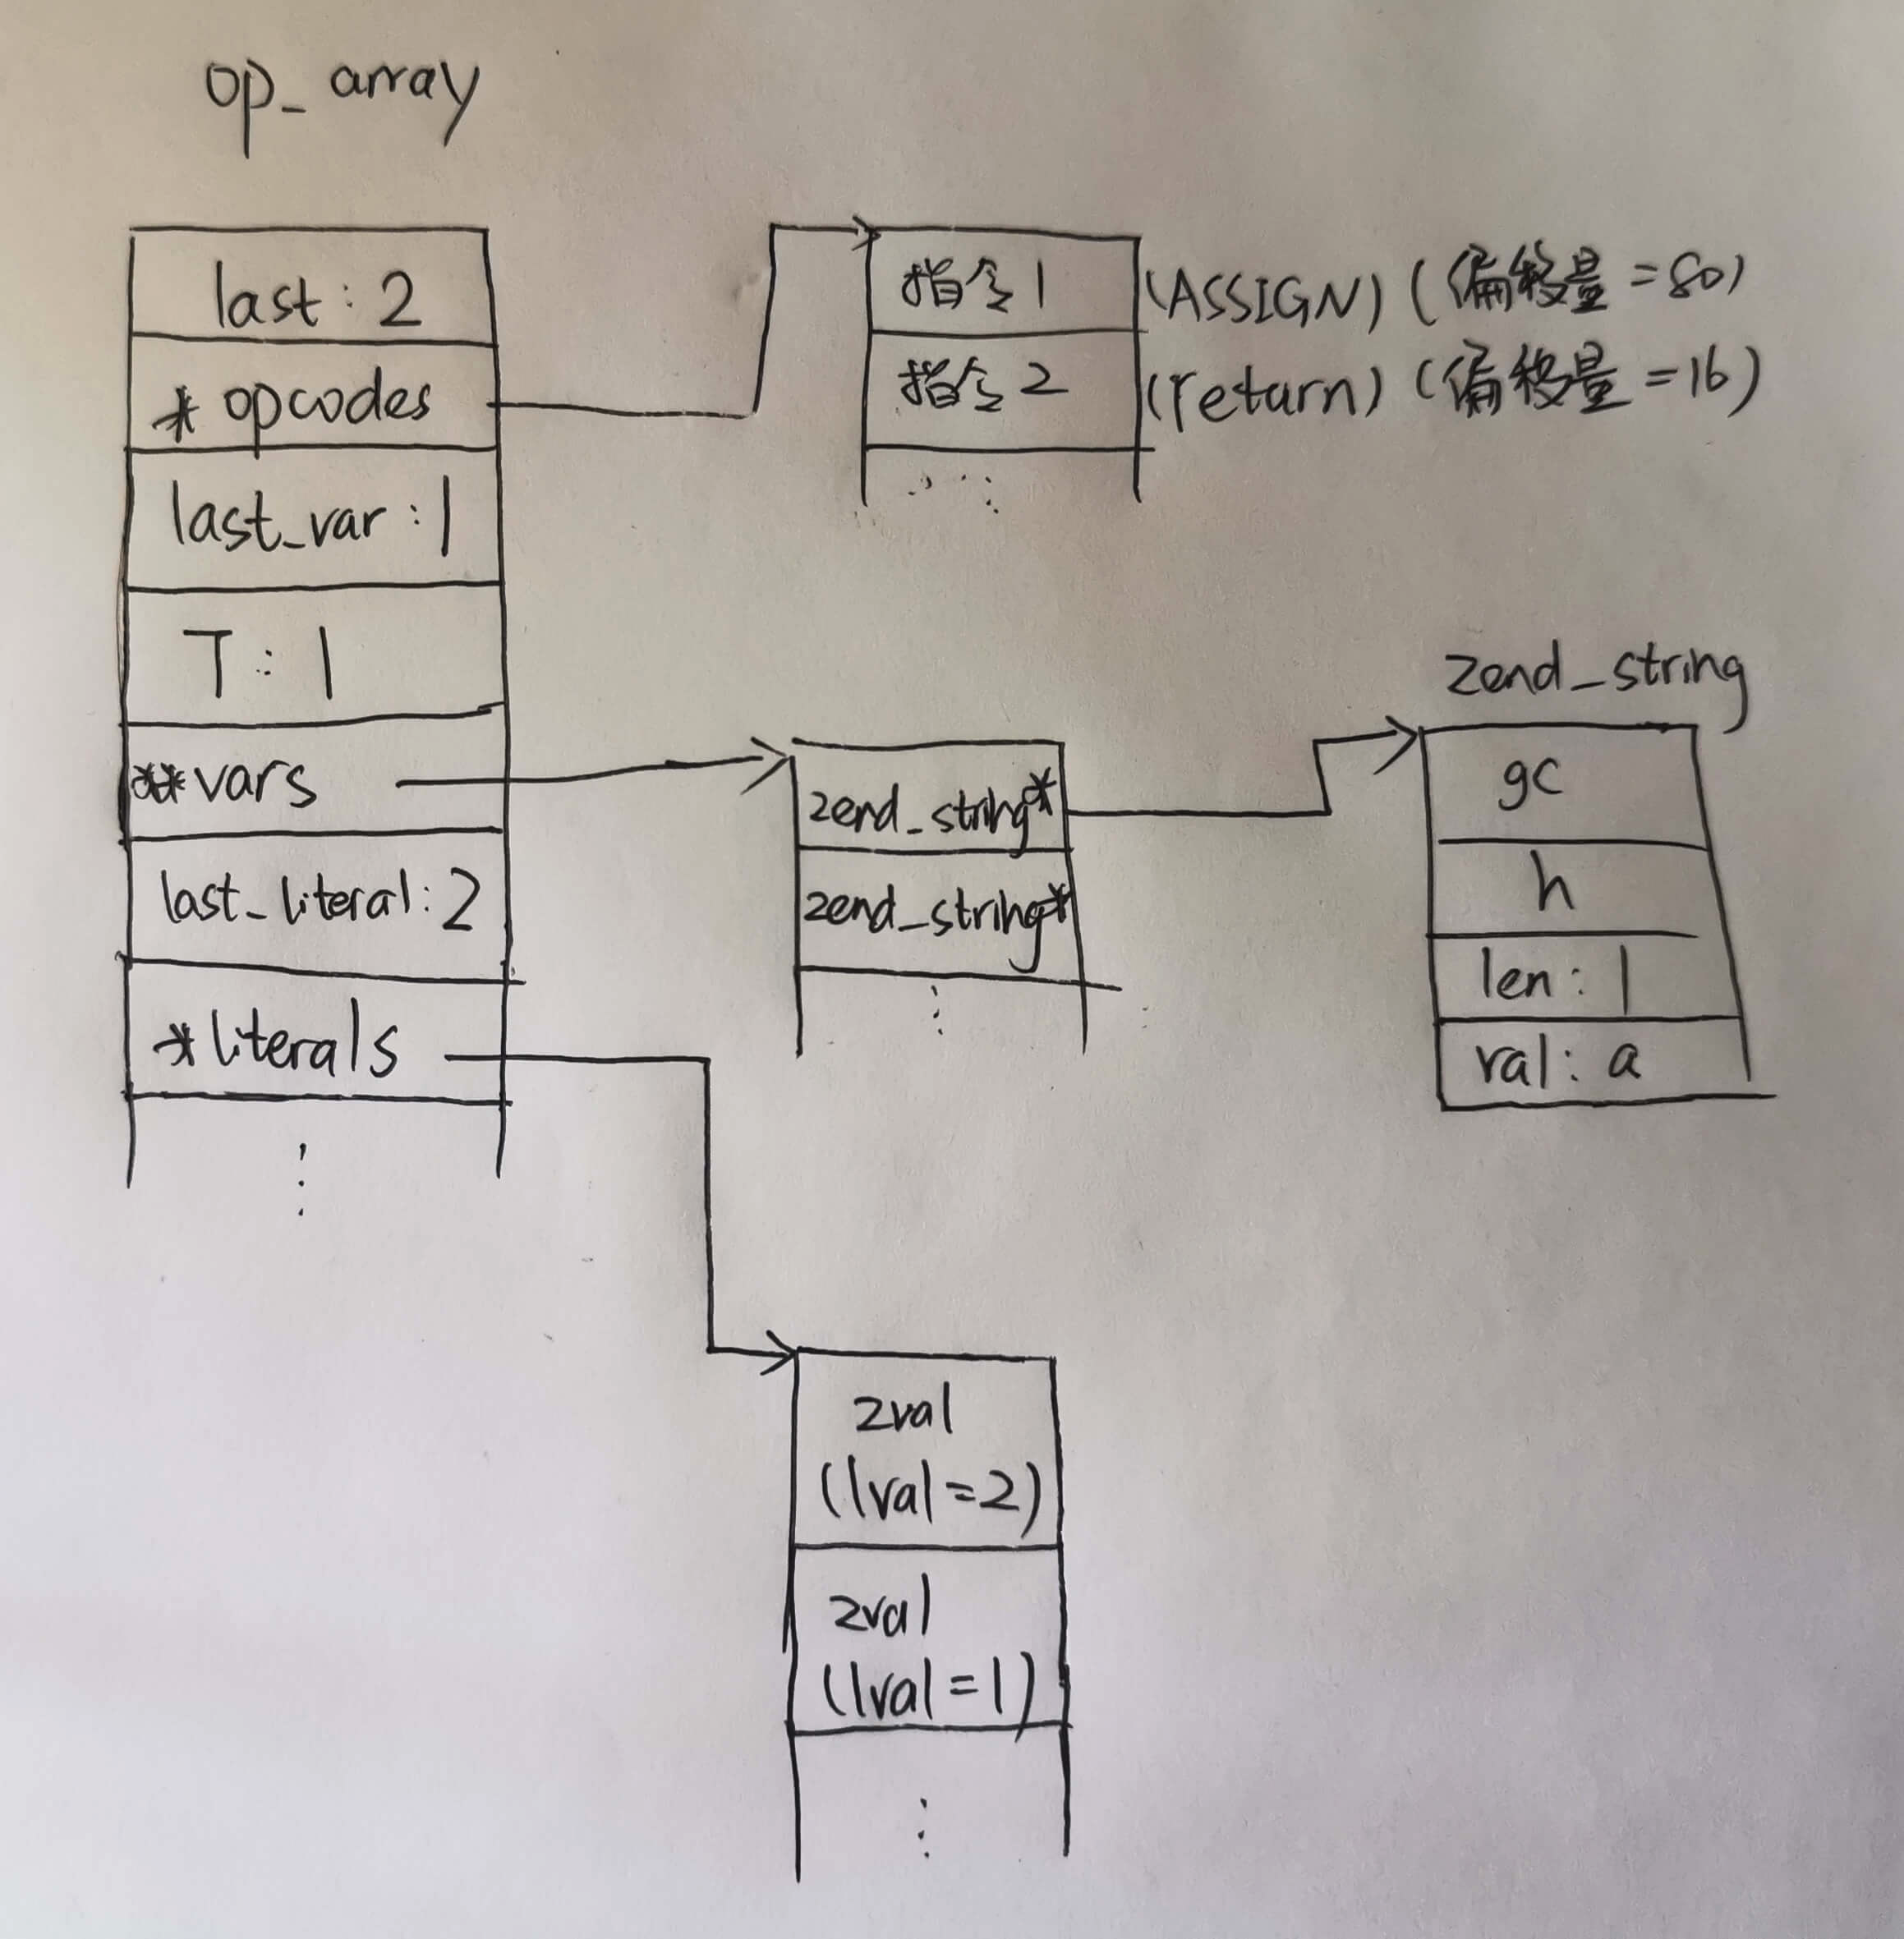 op_array
last:2
*opcodes
last_var:1
T:1
**vars
last_literal:2
*literals
指令1 (ASSIGN) (偏移量=80)
指令2 (return) (偏移量=16)
zend_string*
zend_string*
zend_string
gc
h
len:1
val:a
zval
(lval=2)
zval
(lval=1)